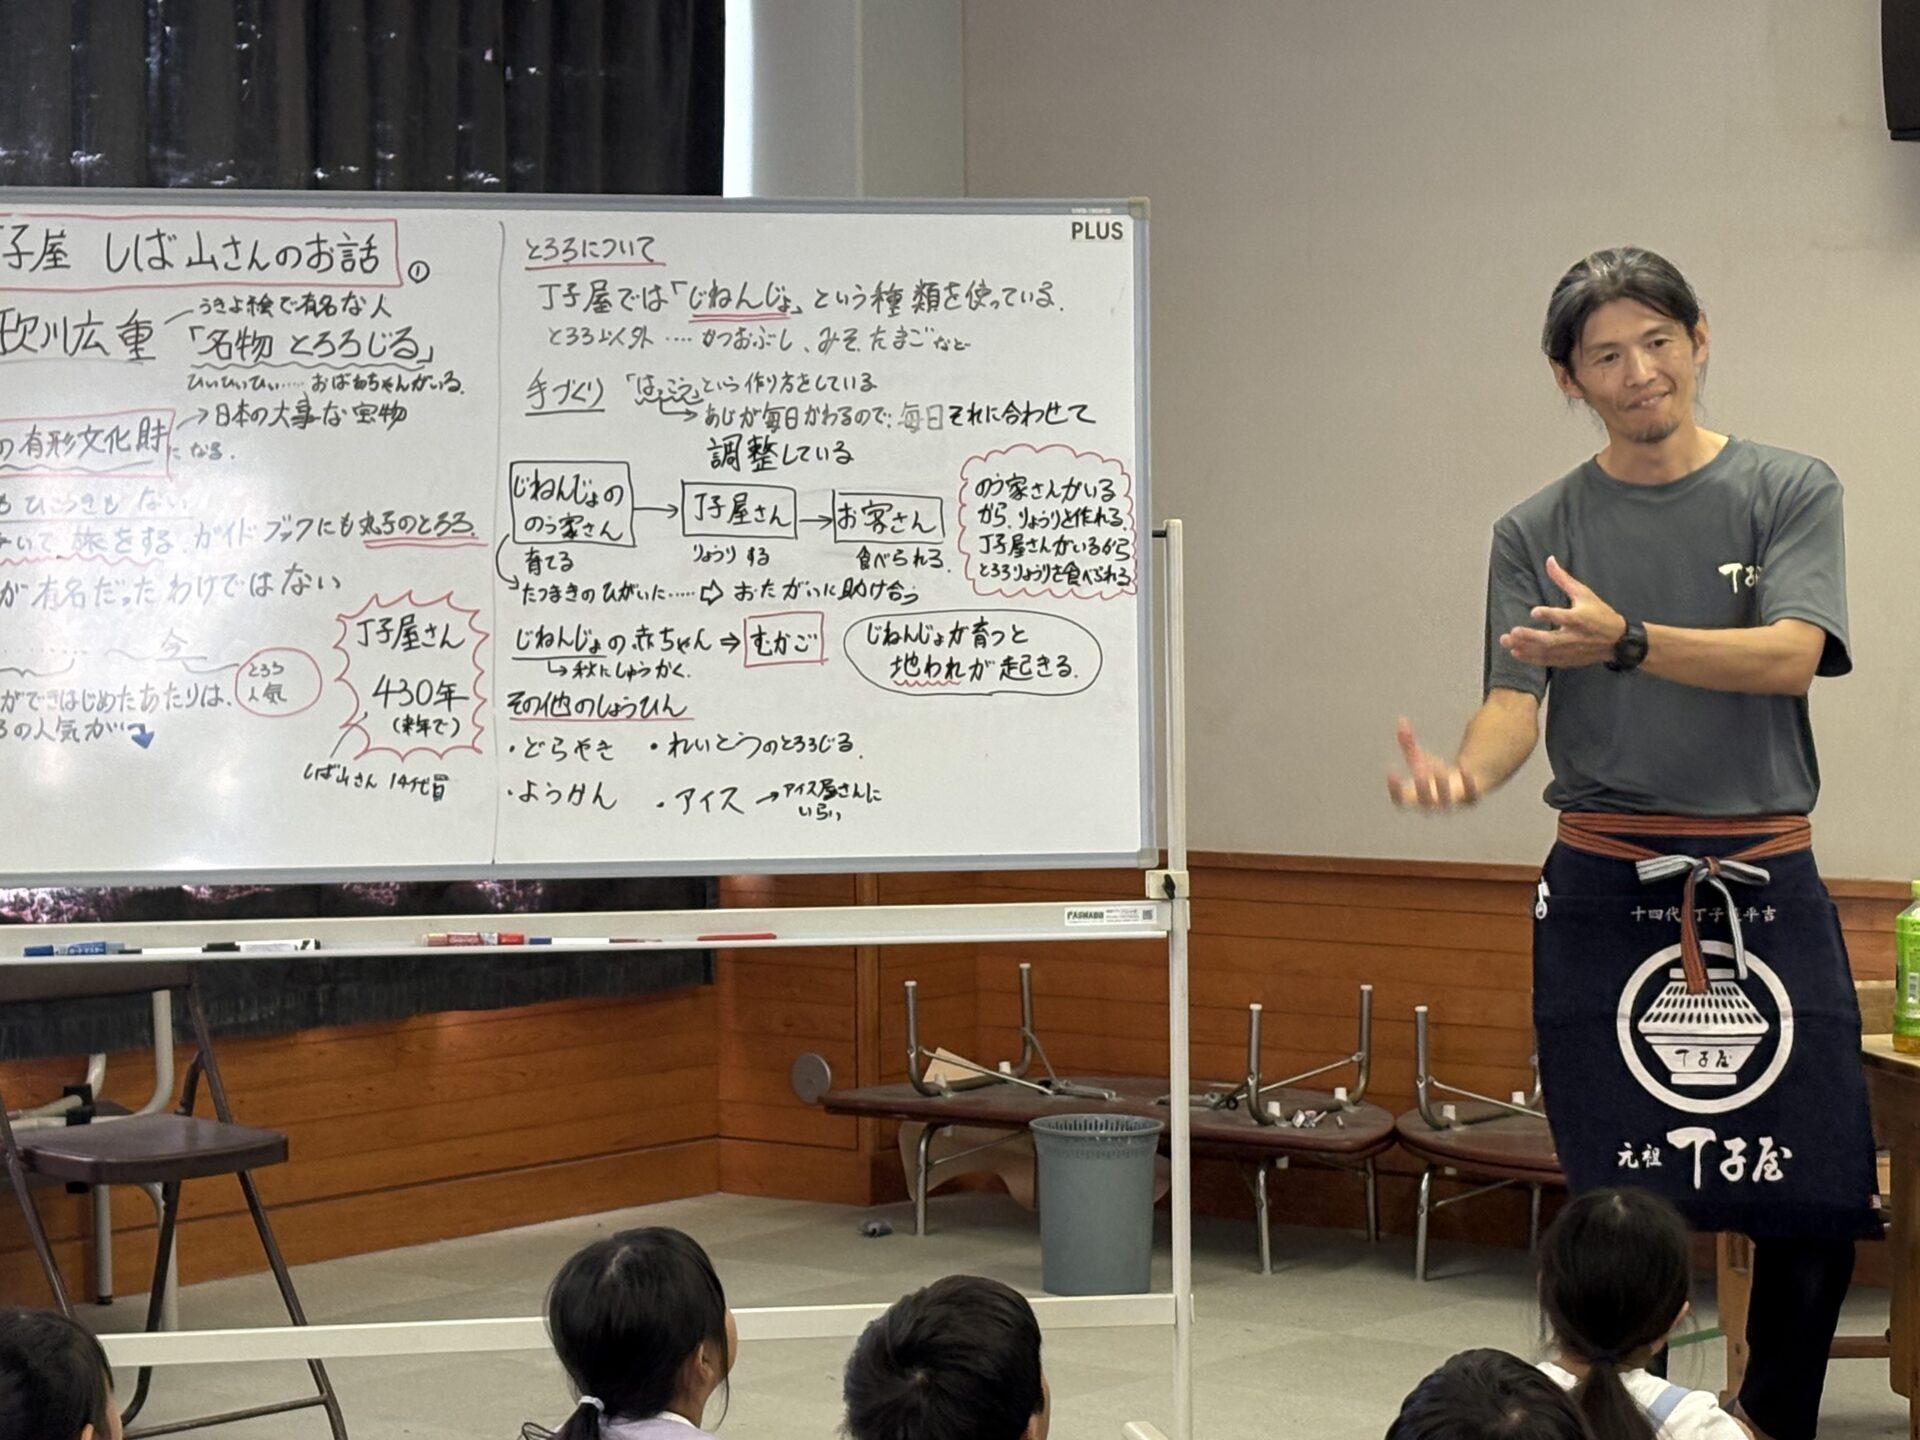 丁子屋 しば山さんのお話 ①
歌川広重
うきよ絵で有名な人
「名物 とろろじる」
ひぃひぃひぃ…… おばあちゃんがいる。
の有形文化財
→日本の大事な宝物
になる。
もひこうきもない
いて旅をする。ガイドブックにも丸子のとろろ。
が有名だったわけではない
今
とろろ
人気
ができはじめたあたりは、
ろの人気が
丁子屋さん
430年
(来年で)
しば山さん 14代目
とろろについて
丁子屋では「じねんじょ」という種類を使っている。
とろろ以外‥‥かつおぶし、みそ、たまごなど
手づくり 「はっこう」という作り方をしている
→あじが毎日かわるので、毎日それに合わせて
調整している
じねんじょの
のう家さん
→ 丁子屋さん → お客さん
育てる りょうりする 食べられる。
たつまきのひがいに‥‥‥⇨ おたがいに助け合う
のう家さんがいる
から、りょうりを作れる。
丁子屋さんがいるから
とろろりょうりを食べられる
じねんじょの赤ちゃん ⇒ むかご
→秋にしゅうかく。
じねんじょが育つと
地われが起きる。
その他のしょうひん
・どらやき ・れいとうのとろろじる。
・ようかん ・アイス → アイス屋さんに
いらい
PLUS
丁子
十四代 丁子屋平吉
丁子屋
元祖 丁子屋